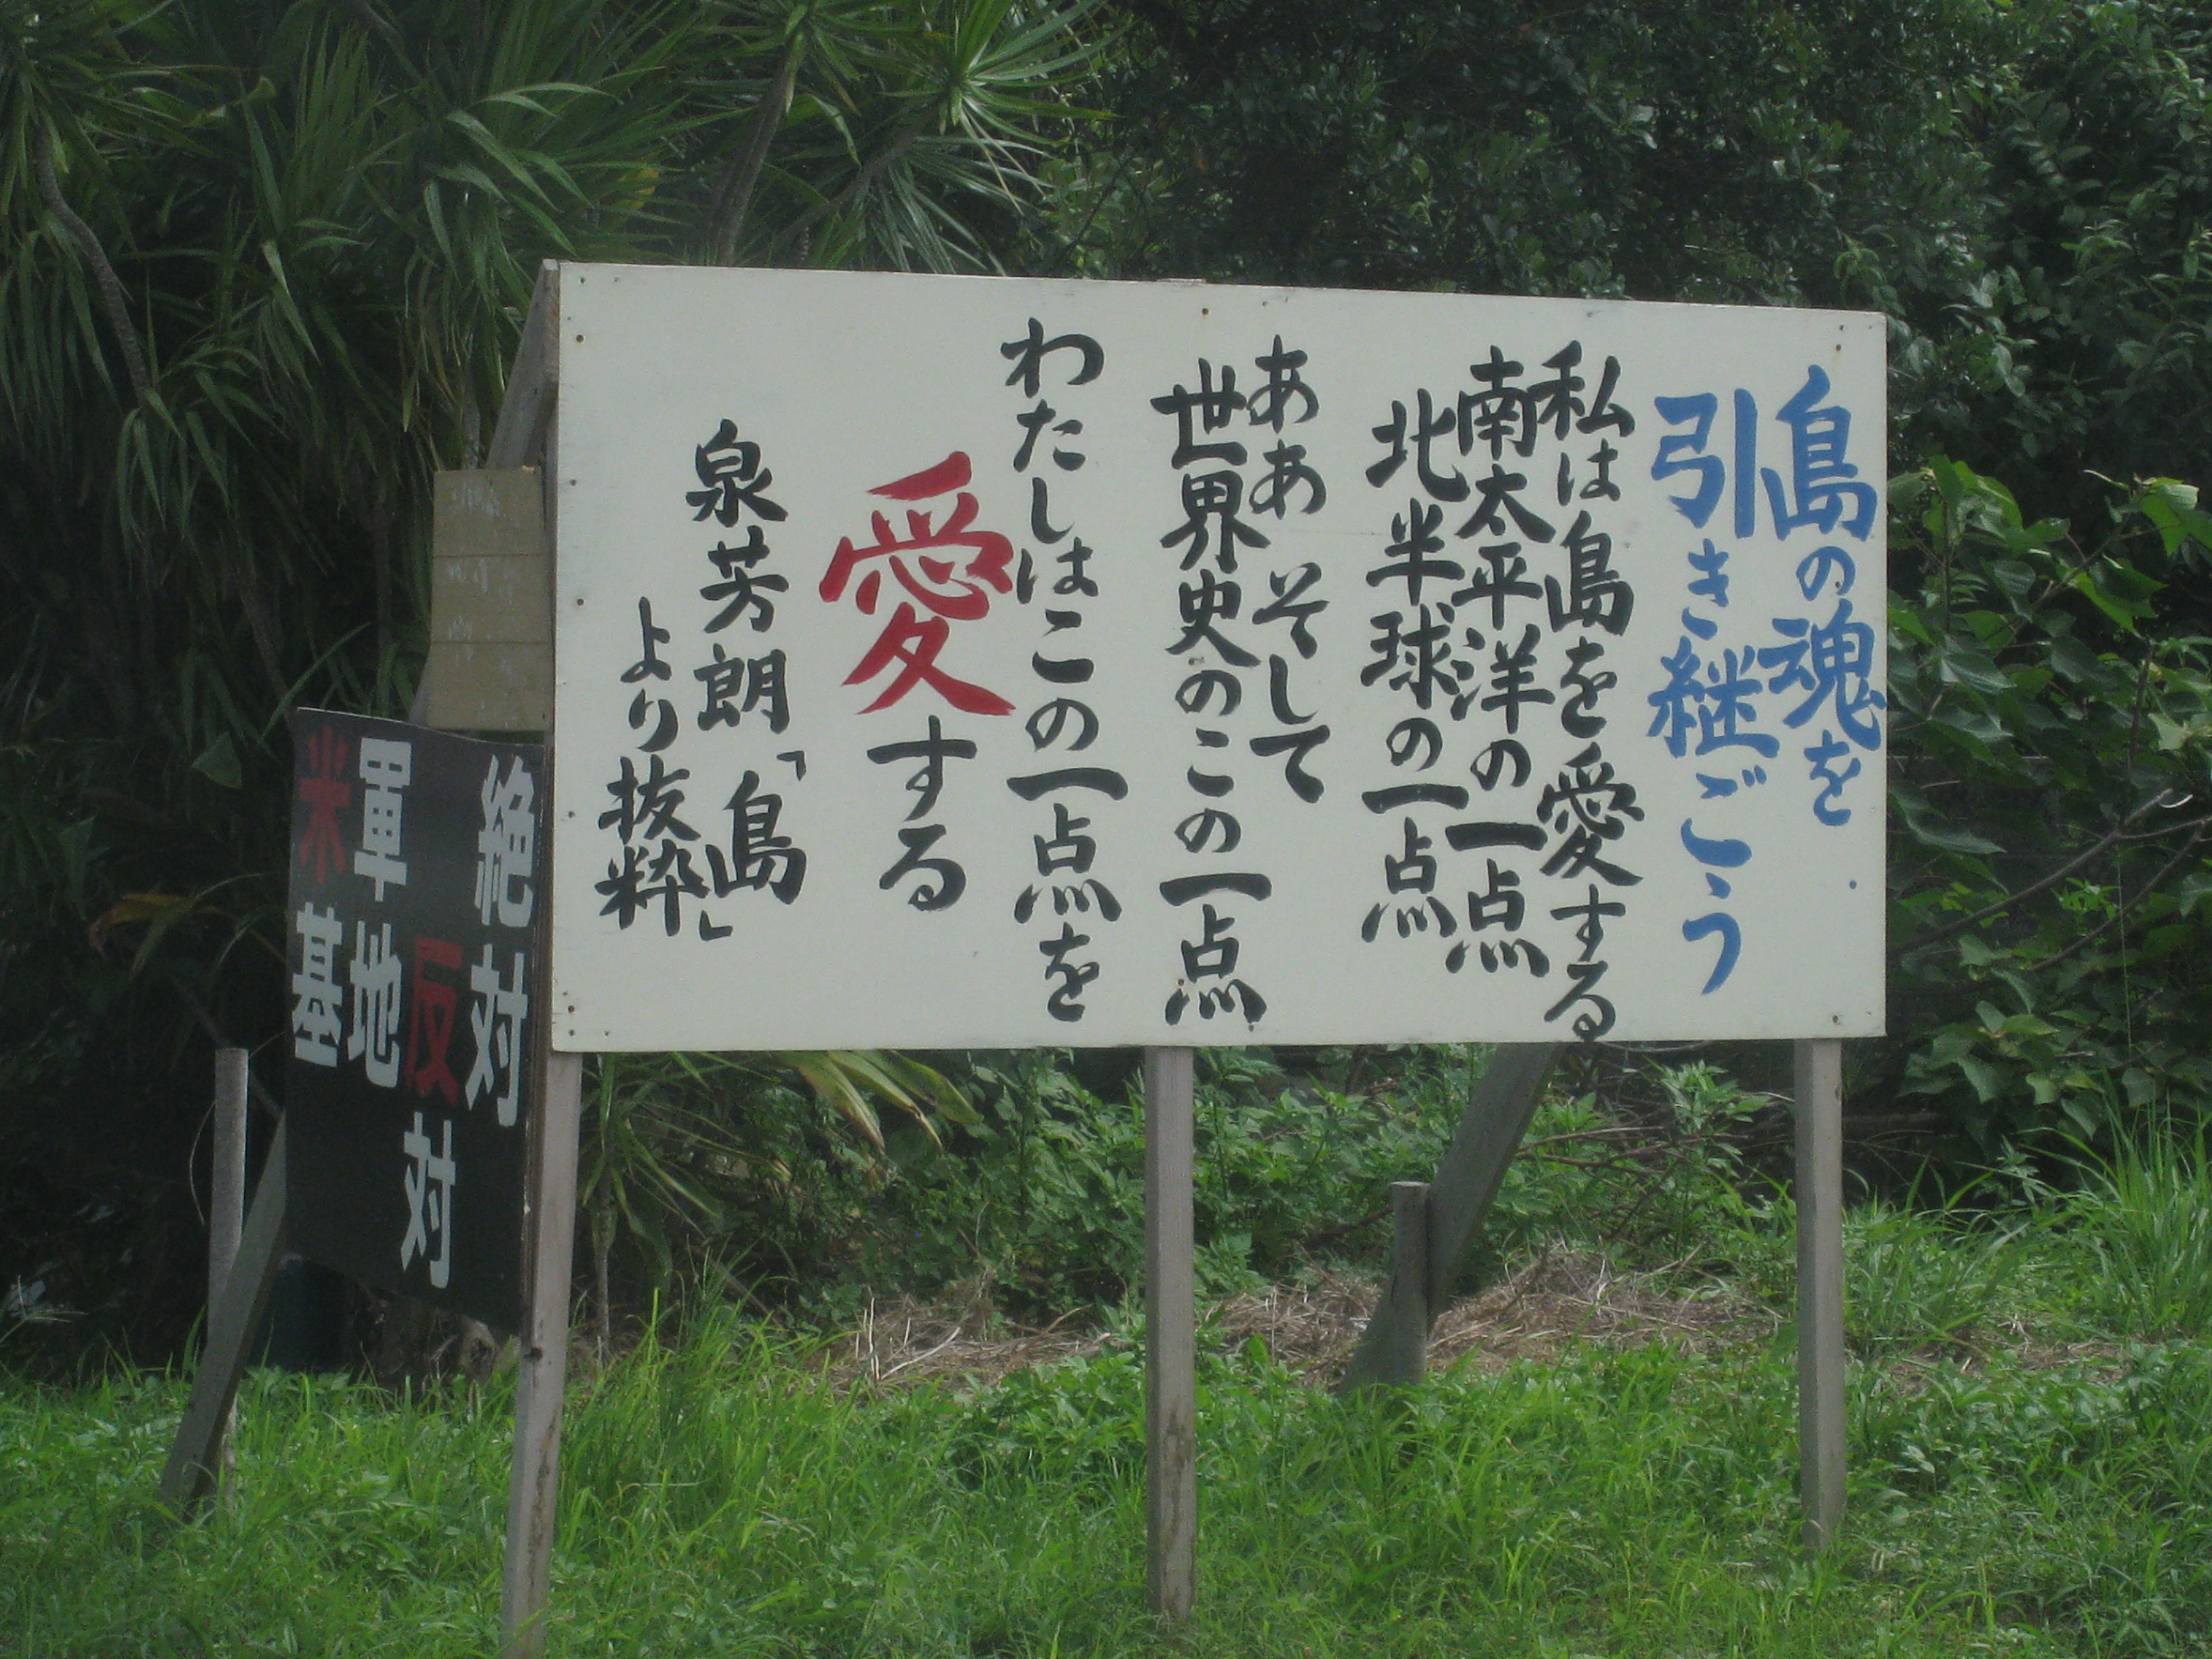 島の魂を
引き継ごう
私は島を愛する
南太平洋の一点
北半球の一点
ああ そして
世界史のこの一点
わたしはこの一点を
愛する
泉芳朗「島」
より抜粋
絶対
反対
軍地
米基